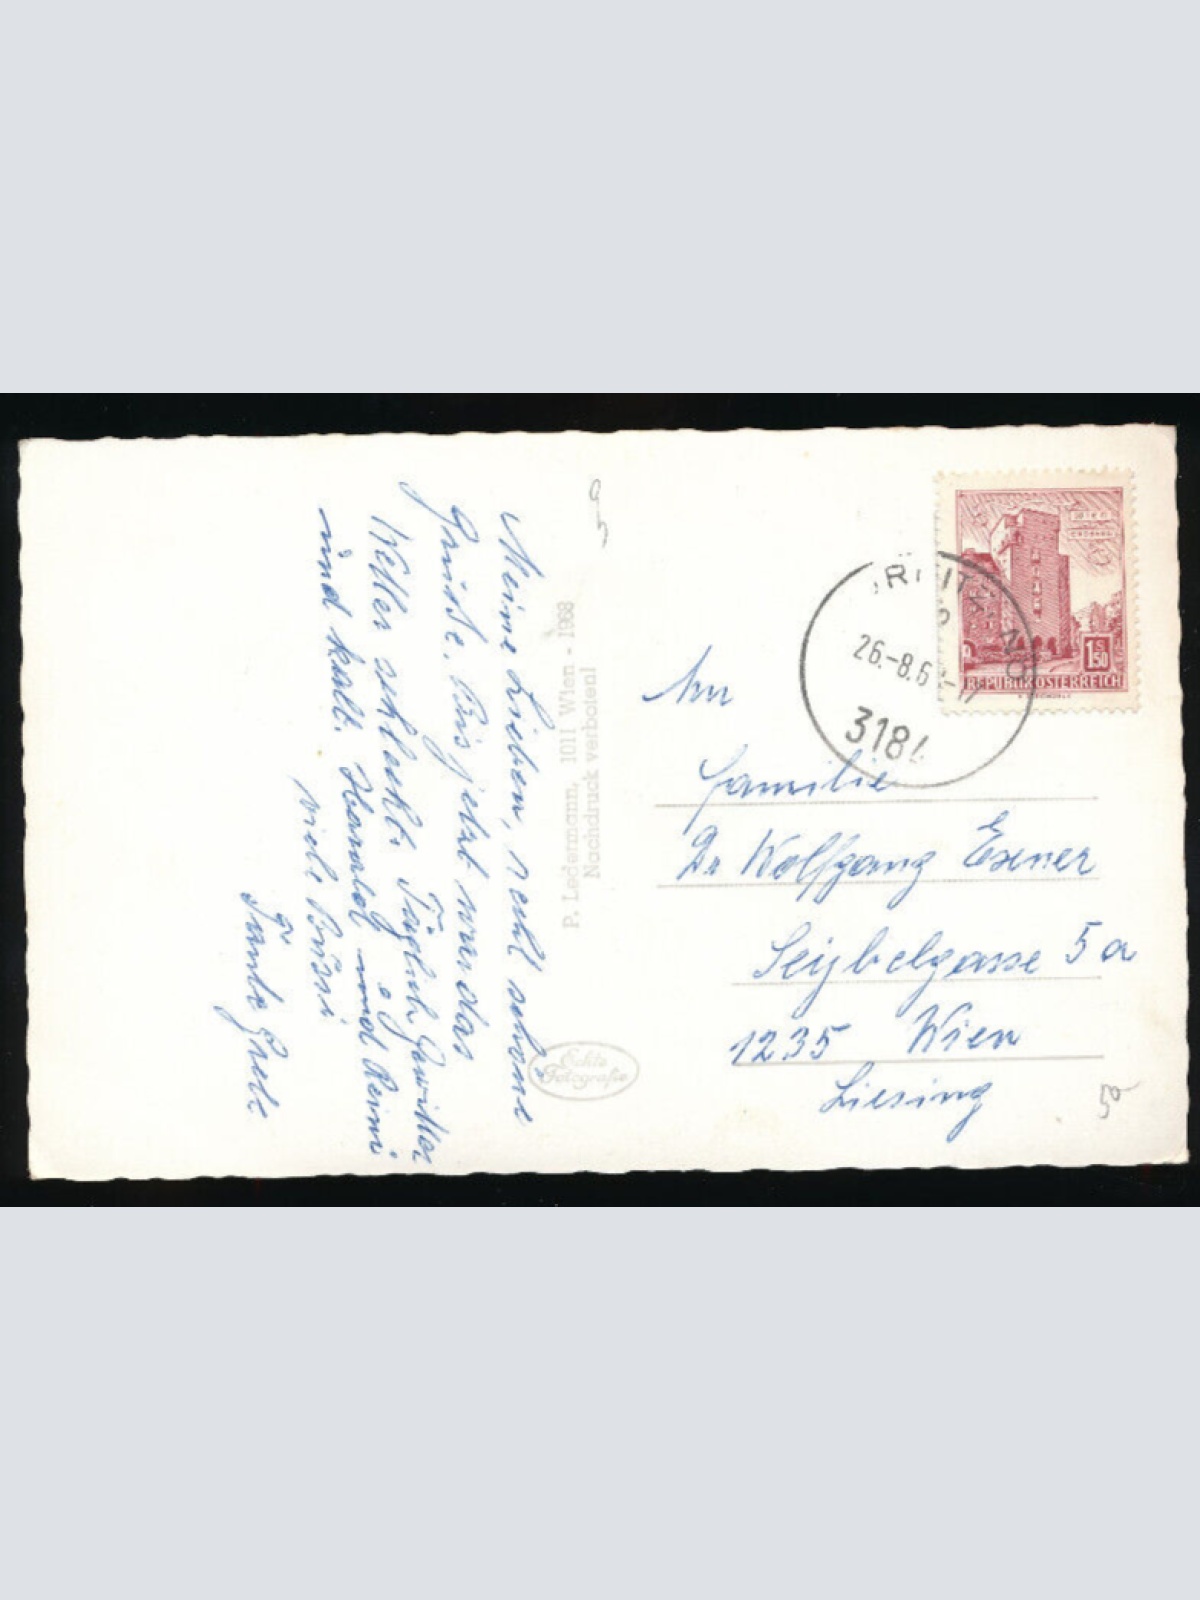 Meine Lieben, recht schöne
Grüsse. Bis jetzt war das
Wetter schlecht. Täglich Gewitter
und kalt. Harald und Reini
viele Bussi
Tante Grete
P. Ledermann, 1011 Wien - 1968
Nachdruck verboten!
Echte
Fotografie
26.-8.6
318
1S50
REPUBLIK ÖSTERREICH
An
Familie
Dr Wolfgang Exner
Seybelgasse 5a
1235 Wien
Liesing
50